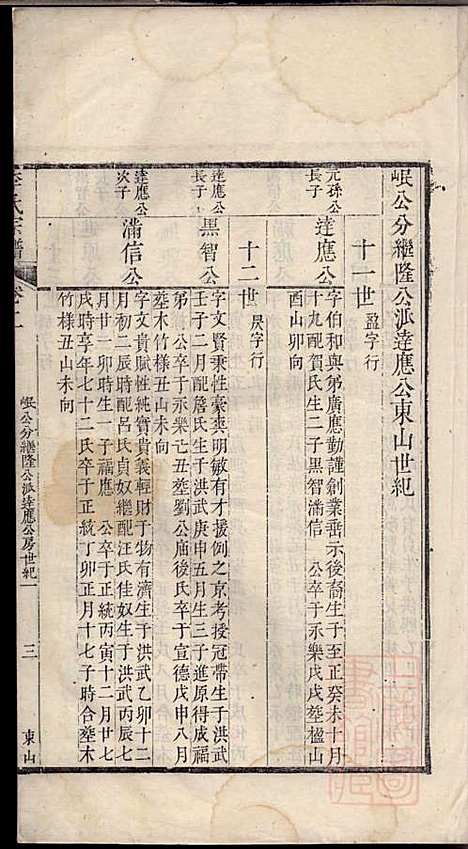 岷公分繼隆公派達應公東山世紀
十一世 盈字行
元孫公長子
達應公
字伯和與弟廣應勤謹創業垂示後裔生于至正癸未十月
十九配賀氏生二子黑智滿信 公卒于永樂戊戌塟楹山
酉山卯向
十二世 昃字行
達應公長子
黑智公
字文賢秉性豪爽明敏有才援例之京考授冠帶生于洪武
壬子二月配詹氏生于洪武庚申五月生三子進原得成福
弟 公卒于永樂乙丑塟劉公廟後氏卒于宣德戊申八月
塟木竹樣丑山未向
達應公次子
滿信公
字文貴賦性純實貴義輕財于物有濟生于洪武乙卯十二
月初二辰時配呂氏貞奴繼配汪氏佳奴生于洪武丙辰七
月廿一卯時生一子福應 公卒于正統丙寅十二月廿七
戌時享年七十二氏卒于正統丁卯正月十七子時合塟木
竹樣丑山未向
李氏宗譜
卷二
岷公分繼隆公派達應公房世紀一
三
東山